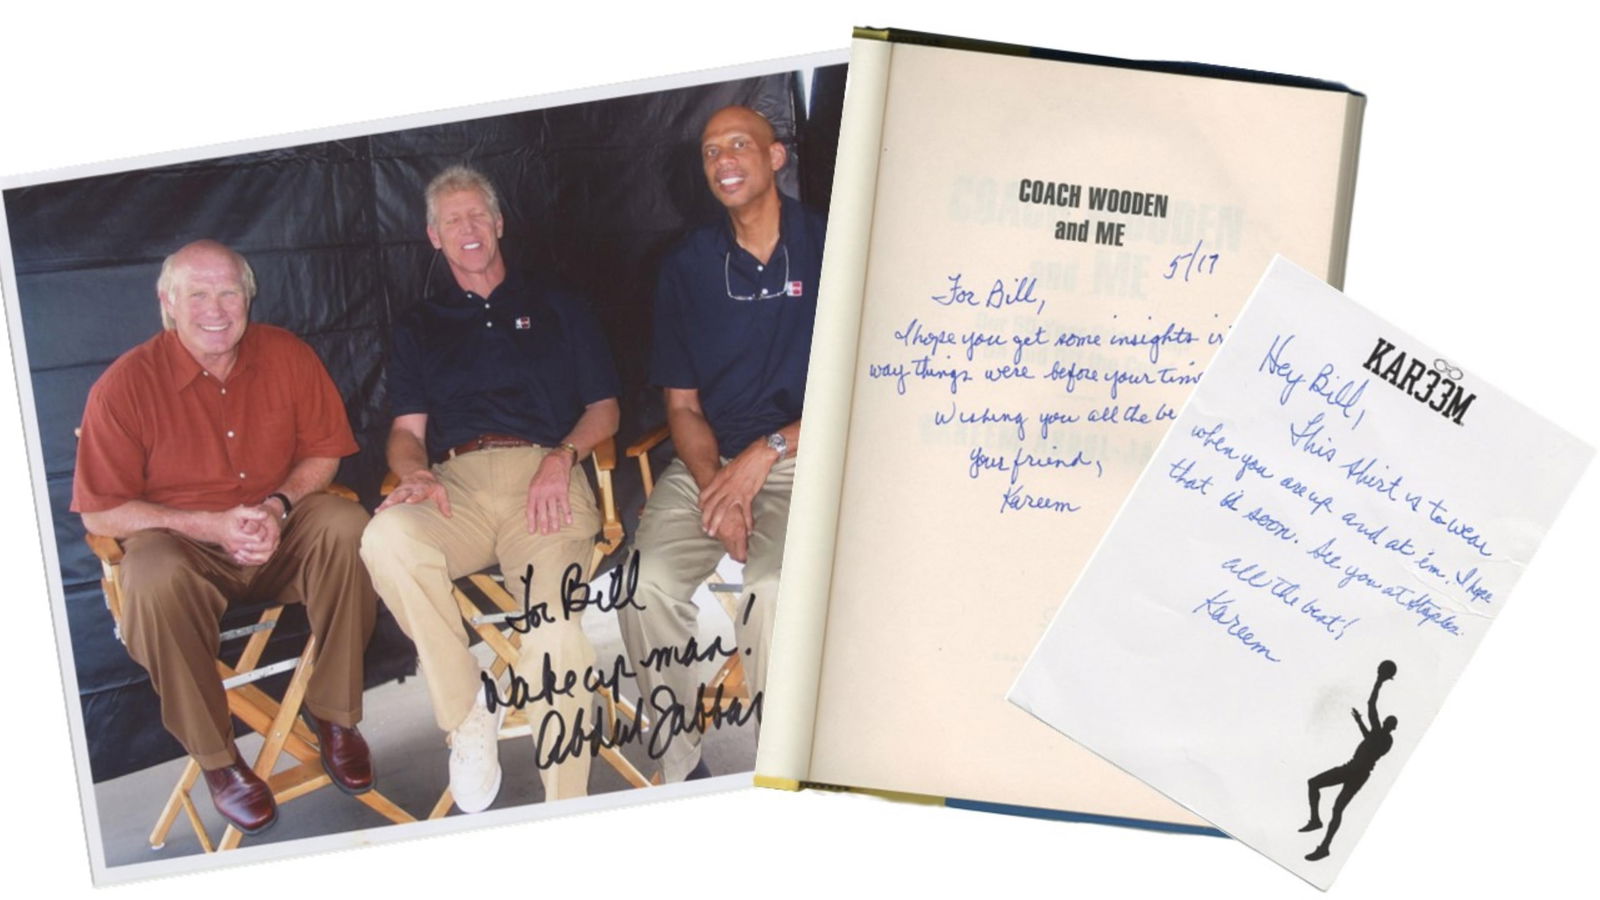 For Bill
Wake up man!
Abdul Jabbar
COACH WOODEN
and ME
5/17
For Bill,
I hope you get some insights
way things were before your
Wishing you all the
your friend,
Kareem
KAR33M
Hey Bill,
This shirt is to wear
when you are up and at 'em. I hope
that is soon. See you at Staples.
all the best!
Kareem